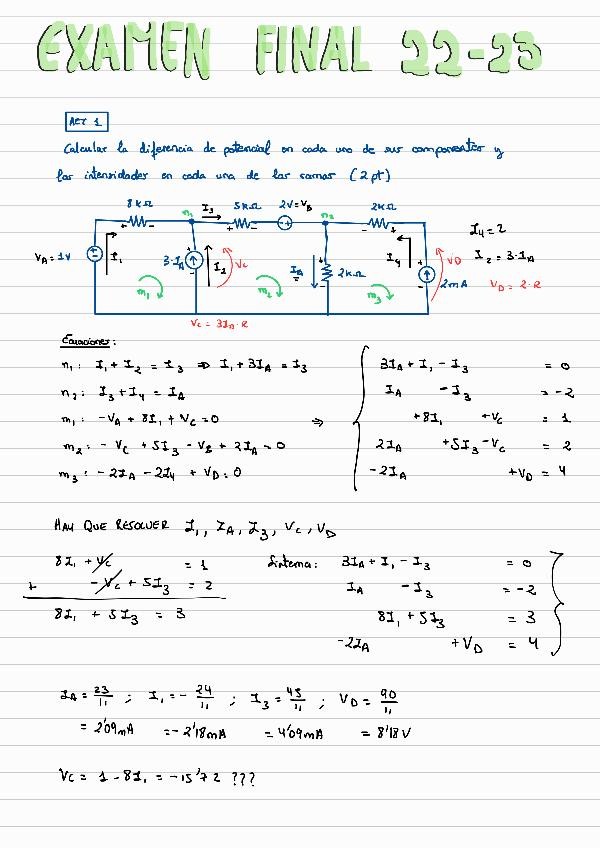 EXAMEN FINAL 22-23
ACT 1
Calcular la diferencia de potencial en cada uno de sus componentes y
las intensidades en cada una de las ramas (2 pt)
8kΩ n₁ I₃ 5kΩ 2V=V_B n₂ 2kΩ
+ - + - - + - +
I₄=2
V_A=1V I₁ 3·I_A I₂ V_C I_A 2kΩ I₄ V_D I₂=3·I_A
m₁ m₂ m₃ 2mA V_D=2·R
V_C=3I_A·R
Ecuaciones:
n₁: I₁+I₂=I₃ ⇒ I₁+3I_A=I₃
n₂: I₃+I₄=I_A
m₁: -V_A+8I₁+V_C=0
m₂: -V_C+5I₃-V_B+2I_A=0
m₃: -2I_A-2I₄+V_D=0
⇒
3I_A+I₁-I₃ = 0
I_A -I₃ = -2
+8I₁ +V_C = 1
2I_A +5I₃-V_C = 2
-2I_A +V_D = 4
HAY QUE RESOLVER I₁, I_A, I₃, V_C, V_D
8I₁+V_C = 1
+ -V_C+5I₃ = 2
8I₁+5I₃ = 3
Sistema: 3I_A+I₁-I₃ = 0
I_A -I₃ = -2
8I₁+5I₃ = 3
-2I_A +V_D = 4
I_A=23/11; I₁=-24/11; I₃=45/11; V_D=90/11
=2'09mA =-2'18mA =4'09mA =8'18V
V_C=1-8I₁=-15'72 ???